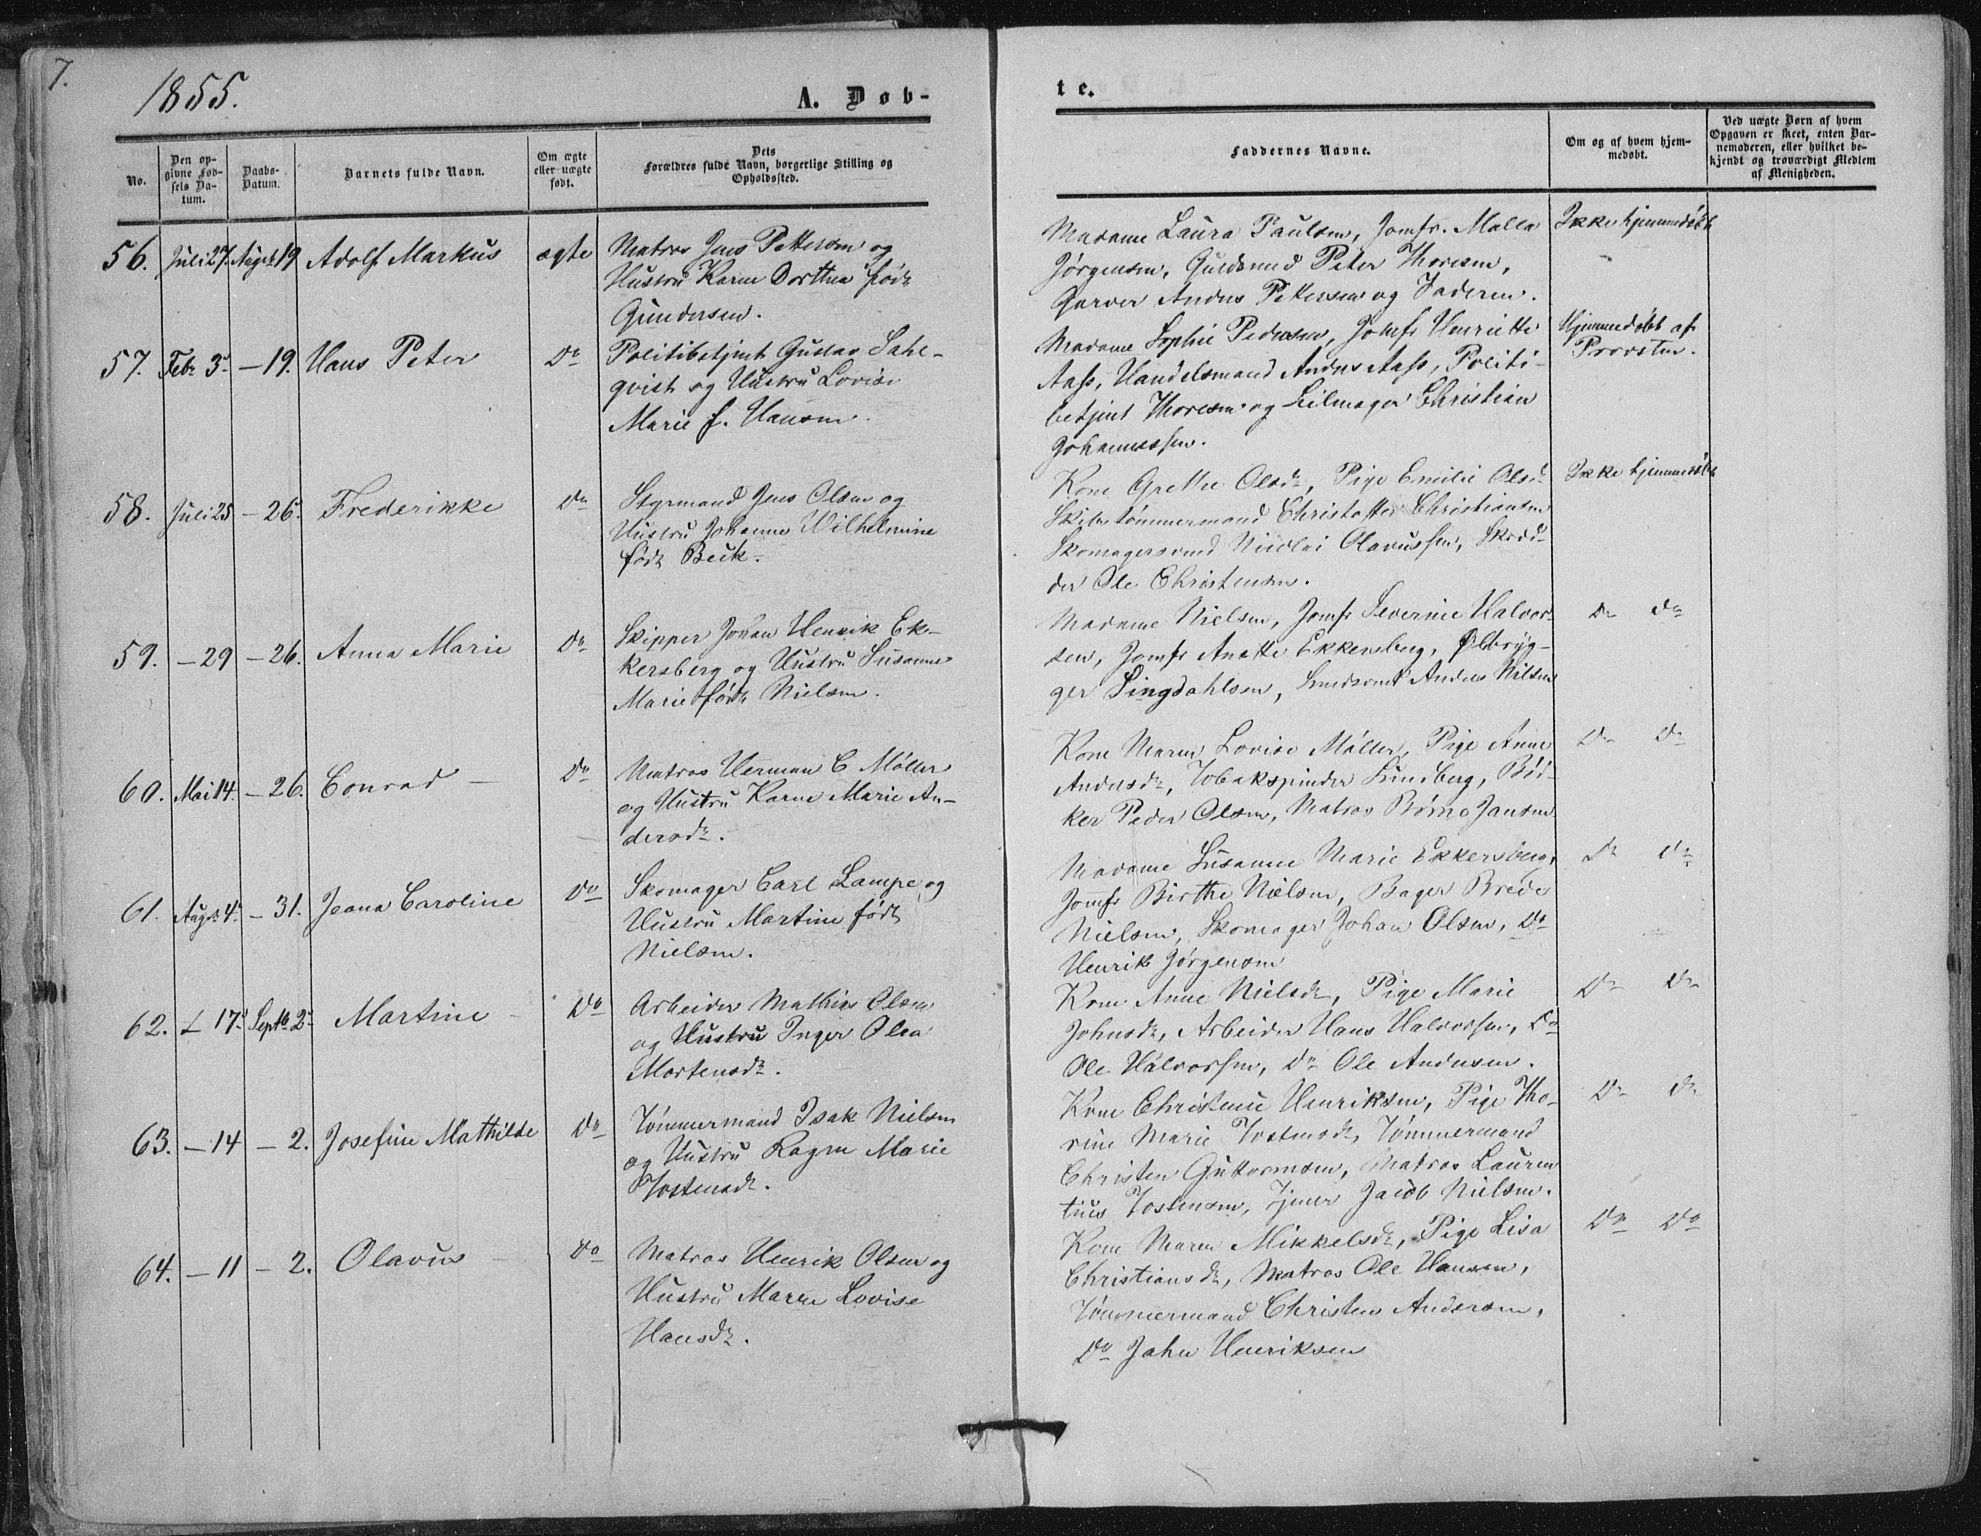 7.
1855.
A. Døb-
te.
No.
Den op-
givne Fød-
sels Da-
tum.
Daabs-
Datum.
Barnets fulde Navn.
Om ægte
eller uægte
født.
Dets
Forældres fulde Navn, borgerlige Stilling og
Opholdssted.
Faddernes Navne.
Om og af hvem hjem-
medøbt.
Ved uægte Børn af hvem
Opgaven er skeet, enten Bar-
nemoderen, eller hvilket be-
kjendt og troværdigt Medlem
af Menigheden.
56. Juli 27. Augst 19 Adolf Markus ægte
Matros Jens Pettersen og
Hustru Karen Dorthea født
Gundersen.
Madame Laura Paulsen, Jomfr. Malla
Jørgensen, Guldsmed Peter Thoresen,
Garver Anders Pettersen og Faderen.
Ikke hjemmedøbt
57. Febr 3. — 19. Hans Peter Do
Politibetjent Gustav Sahl-
qvist og Hustru Lovise
Marie f. Hansen.
Madame Sophie Pedersen, Jomfr Henriette
Aass, Handelsmand Anders Aass, Politi-
betjent Thoresen og Seilmager Christian
Johannessen.
Hjemmedøbt af
Provsten.
58. Juli 25 — 26. Frederikke Do
Styrmand Jens Olsen og
Hustru Johanne Wilhelmine
født Beck.
Kone Grethe Olsdr, Pige Emilie Olsdr
Skibstømmermand Christoffer Christiansen
Skomagersvend Nicolai Olavussen, Skræd-
der Ole Christensen.
Ikke hjemmedøbt
59. — 29 — 26. Anna Marie Do
Skipper Johan Henrik Ek-
kersberg og Hustru Susanne
Marie født Nielsen.
Madame Nielsen, Jomfr Severine Halvor-
sen, Jomfr Anette Ekkersberg, Ølbryg-
ger Lingdahlsen, Anders Nilsen
Do Do
60. Mai 14. — 26. Conrad — Do
Matros Herman C Møller
og Hustru Karen Marie An-
dersdr.
Kone Maren Lovise Møller, Pige Anne
Andersdr, Tobakspinder Lundberg, Bød-
ker Peder Olsen, Matros Jansen
Do Do
61. Augst 4. — 31. Jeana Caroline Do
Skomager Carl Lampe og
Hustru Martine født
Nielsen.
Madame Susanne Marie Ekkersberg,
Jomfr Birthe Nielsen, Bager Brede
Nielsen, Skomager Johan Olsen, Do
Henrik Jørgensen
Do Do
62. — 17. Septbr 2. Martine — Do
Arbeider Mathias Olsen
og Hustru Inger Olea
Mortensdr.
Kone Anne Nielsdr, Pige Marie
Johnsdr, Arbeider Hans Halvorsen, Do
Ole Halvorsen, Do Ole Andersen.
Do Do
63. — 14 — 2. Josefine Mathilde Do
Tømmermand Isak Nielsen
og Hustru Ragne Marie
Tostensdr.
Kone Christine Henriksen, Pige Tho-
rine Marie Tostensdr, Tømmermand
Christen Guttormsen, Matros Lauren
tius Tostensen, Tjener Jacob Nielsen.
Do Do
64. — 11 — 2. Olavus — Do
Matros Henrik Olsen og
Hustru Maren Lovise
Hansdr.
Kone Maren Mikkelsdr, Pige Lisa
Christiansdr, Matros Ole Hansen,
Tømmermand Christen Andersen,
Do John Henriksen
Do Do